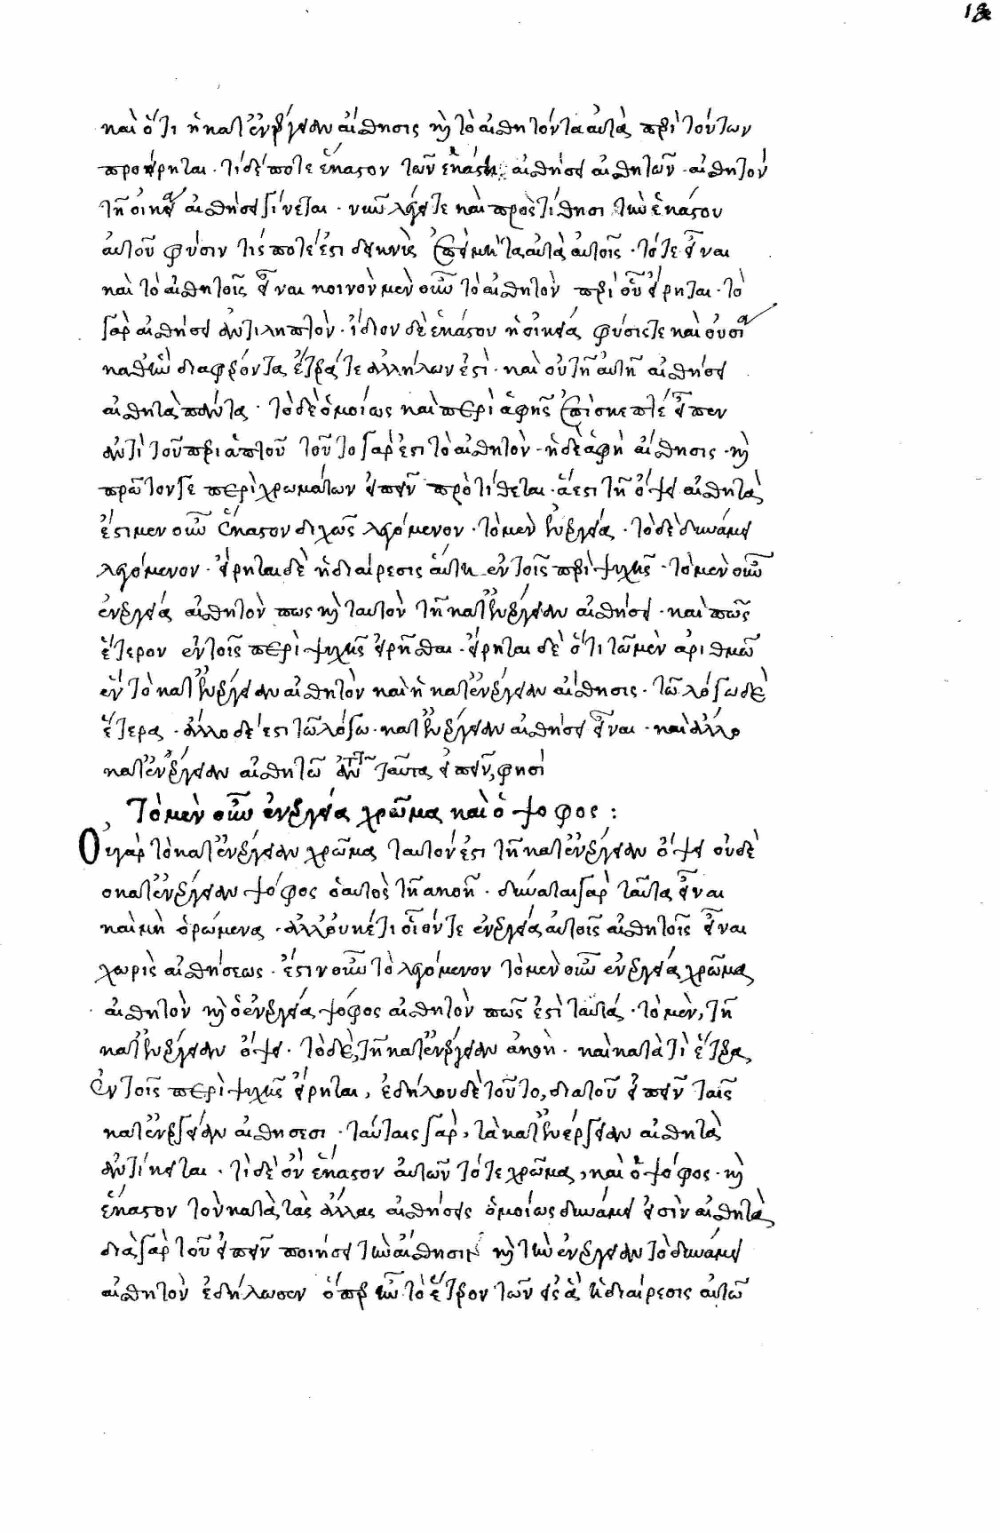 18
καὶ ὅτι ἡ κατ' ἐνέργειαν αἴσθησις καὶ τὸ αἰσθητὸν ταυτὰ περὶ τούτων
προείρηται · τί δέ ποτε ἕκαστον τῶν ἑκάστῃ αἰσθήσει αἰσθητῶν · αἰσθητὸν
τῇ οἰκείᾳ αἰσθήσει γίνεται · νῦν λέγει τε καὶ προστίθησι τὴν ἑκάστου
αὐτοῦ φύσιν τίς ποτέ ἐστι δεικνὺς ἐπεὶ μὴ ταυτὰ αὐτοῖς · τό τε εἶναι
καὶ τὸ αἰσθητοῖς εἶναι κοινὸν μὲν οὖν τὸ αἰσθητὸν περὶ οὗ εἴρηται · τὸ
γὰρ αἰσθήσει ἀντιληπτὸν · ἴδιον δὲ ἑκάστου ἡ οἰκεία φύσις τε καὶ οὐσία
καθ' ἣν διαφέροντα ἕτερά τε ἀλλήλων ἐστὶ · καὶ οὐ τῇ αὐτῇ αἰσθήσει
αἰσθητὰ πάντα · τὸ δὲ ὁμοίως καὶ περὶ ἁφῆς ἐπισκεπτέον εἶπεν
ἀντὶ τοῦ περὶ ἁπτοῦ τοῦτο γάρ ἐστι τὸ αἰσθητὸν · ἡ δὲ ἁφὴ αἴσθησις · καὶ
πρῶτόν γε περὶ χρωμάτων εἰπεῖν προτίθεται · ἅ ἐστι τῇ ὄψει αἰσθητὰ
ἔστι μὲν οὖν ἕκαστον διχῶς λεγόμενον · τὸ μὲν ἐνεργείᾳ · τὸ δὲ δυνάμει
λεγόμενον · εἴρηται δὲ ἡ διαίρεσις αὕτη ἐν τοῖς περὶ ψυχῆς · τὸ μὲν οὖν
ἐνεργείᾳ αἰσθητὸν πως καὶ ταυτὸν τῇ κατ' ἐνέργειαν αἰσθήσει · καὶ πῶς
ἕτερον ἐν τοῖς περὶ ψυχῆς εἰρῆσθαι · εἴρηται δὲ ὅτι τῷ μὲν ἀριθμῷ
ἓν τὸ κατ' ἐνέργειαν αἰσθητὸν καὶ ἡ κατ' ἐνέργειαν αἴσθησις · τῷ λόγῳ δὲ
ἕτερα · ἄλλο δέ ἐστι τῷ λόγῳ · κατ' ἐνέργειαν αἰσθήσει εἶναι · καὶ ἄλλο
κατ' ἐνέργειαν αἰσθητῷ ταῦτα εἰπὼν, φησὶ
Τὸ μὲν οὖν ἐνεργείᾳ χρῶμα καὶ ὁ ψόφος :
Οὐ γὰρ τὸ κατ' ἐνέργειαν χρῶμα ταυτόν ἐστι τῇ κατ' ἐνέργειαν ὄψει οὐδὲ
ὁ κατ' ἐνέργειαν ψόφος ὁ αὐτὸς τῇ ἀκοῇ · δύναται γὰρ ταῦτα εἶναι
καὶ μὴ ὁρώμενα · ἀλλ' οὐκέτι οἷόν τε ἐνεργείᾳ αὐτοῖς αἰσθητοῖς εἶναι
χωρὶς αἰσθήσεως · ἔστιν οὖν τὸ λεγόμενον τὸ μὲν οὖν ἐνεργείᾳ χρῶμα
αἰσθητὸν καὶ ὁ ἐνεργείᾳ ψόφος αἰσθητὸν πῶς ἐστὶ ταυτά · τὸ μὲν, τῇ
κατ' ἐνέργειαν ὄψει · τὸ δὲ, τῇ κατ' ἐνέργειαν ἀκοῇ · καὶ κατὰ τί ἕτερα,
ἐν τοῖς περὶ ψυχῆς εἴρηται, ἐδήλου δὲ τοῦτο, διὰ τοῦ εἰπεῖν ταῖς
κατ' ἐνέργειαν αἰσθήσεσι · ταύταις γὰρ, τὰ κατ' ἐνέργειαν αἰσθητὰ
ἀντίκειται · τί δὲ ὂν ἕκαστον αὐτῶν τό τε χρῶμα, καὶ ὁ ψόφος · καὶ
ἕκαστον τὸν κατὰ τὰς ἄλλας αἰσθήσεις ὁμοίως δυνάμει ἐστὶν αἰσθητὰ
διὰ γὰρ τοῦ εἰπεῖν ποιήσει τὴν αἴσθησιν καὶ τὴν ἐνέργειαν τὸ δυνάμει
αἰσθητὸν ἐδήλωσεν ὅπερ ἦν τὸ ἕτερον τῶν εἰς ἃ ἡ διαίρεσις αὐτῷ